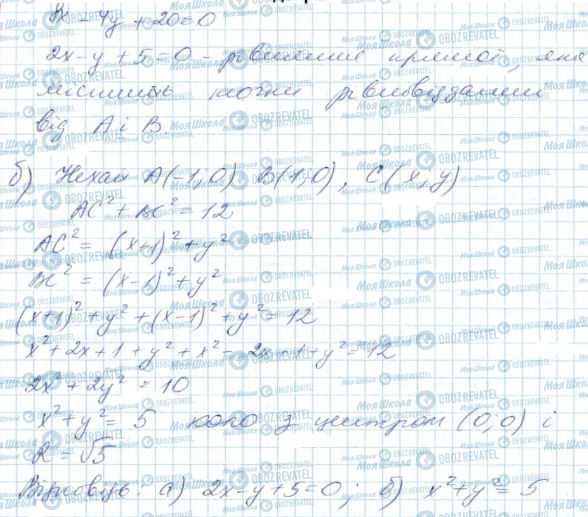 8x - 4y + 20 = 0
2x - y + 5 = 0 - рівняння прямої, яка
містить точки рівновіддалені
від А і В
б) Нехай A(-1;0) B(1;0), C(x;y)
AC² + BC² = 12
AC² = (x+1)² + y²
BC² = (x-1)² + y²
(x+1)² + y² + (x-1)² + y² = 12
x² + 2x + 1 + y² + x² - 2x + 1 + y² = 12
2x² + 2y² = 10
x² + y² = 5 коло з центром (0;0) і
R = √5
Відповідь: а) 2x-y+5=0; б) x²+y²=5